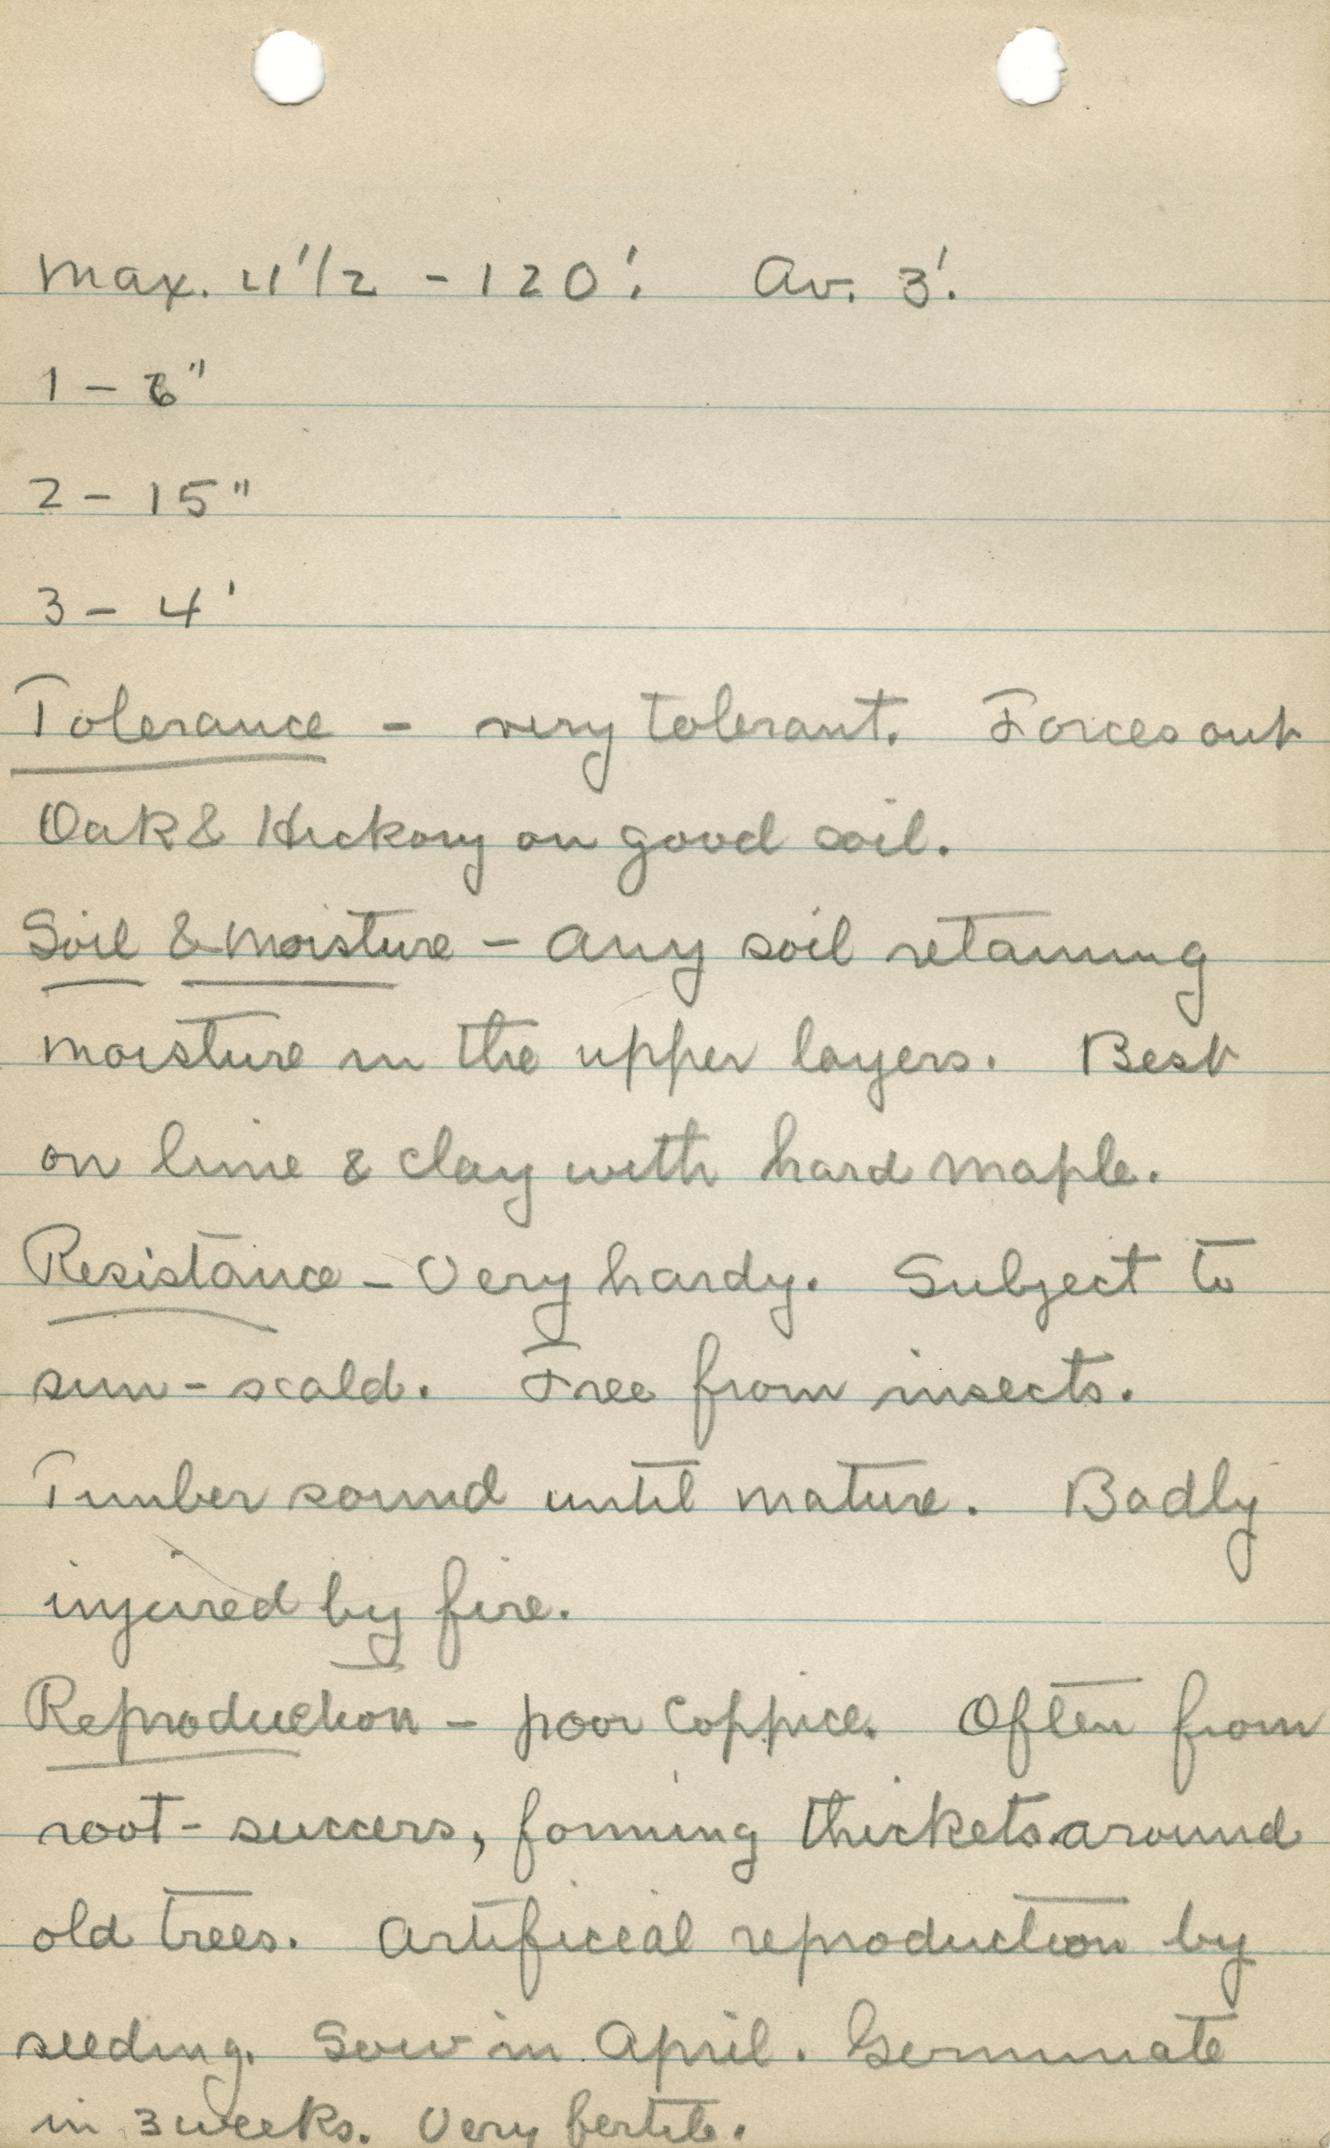 Max. 4'1/2 - 120'. Av. 3'.
1 - 6"
2 - 15"
3 - 4'
Tolerance - very tolerant. Forces out
Oak & Hickory on good soil.
Soil & Moisture - Any soil retaining
moisture in the upper layers. Best
on lime & clay with hard maple.
Resistance - Very hardy. Subject to
sun-scald. Free from insects.
Timber sound until mature. Badly
injured by fire.
Reproduction - poor coppice. Often from
root-succers, forming thickets around
old trees. Artificial reproduction by
seeding. Sow in April. Germinate
in 3 weeks. Very fertile.